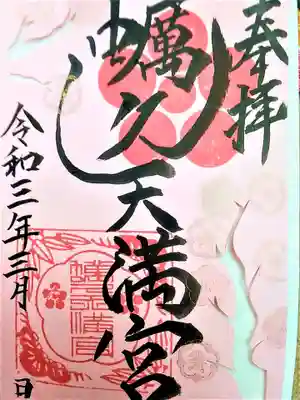 奉拝
蠣久天満宮
令和三年三月 日